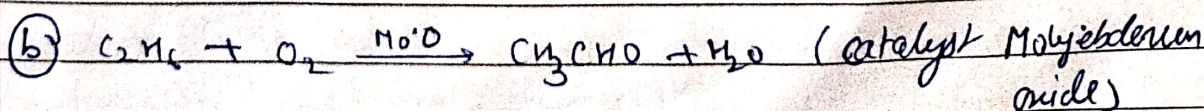 (b) C2H6 + O2 Mo'O → CH3CHO + H2O (catalyst Molyebdenum
oxide)